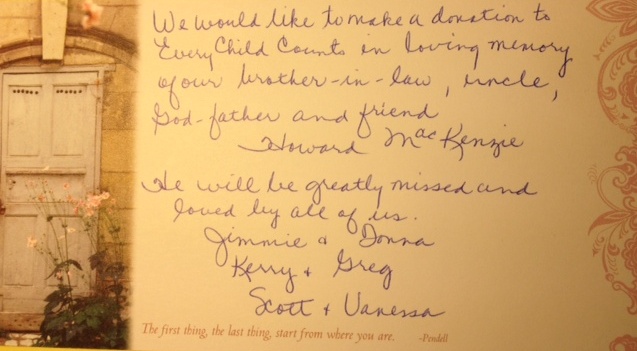 We would like to make a donation to
Every Child Counts in loving memory
of our brother-in-law, uncle,
God-father and friend
Howard MacKenzie
He will be greatly missed and
loved by all of us.
Jimmie & Donna
Kerry & Greg
Scott & Vanessa
The first thing, the last thing, start from where you are. -Pendell